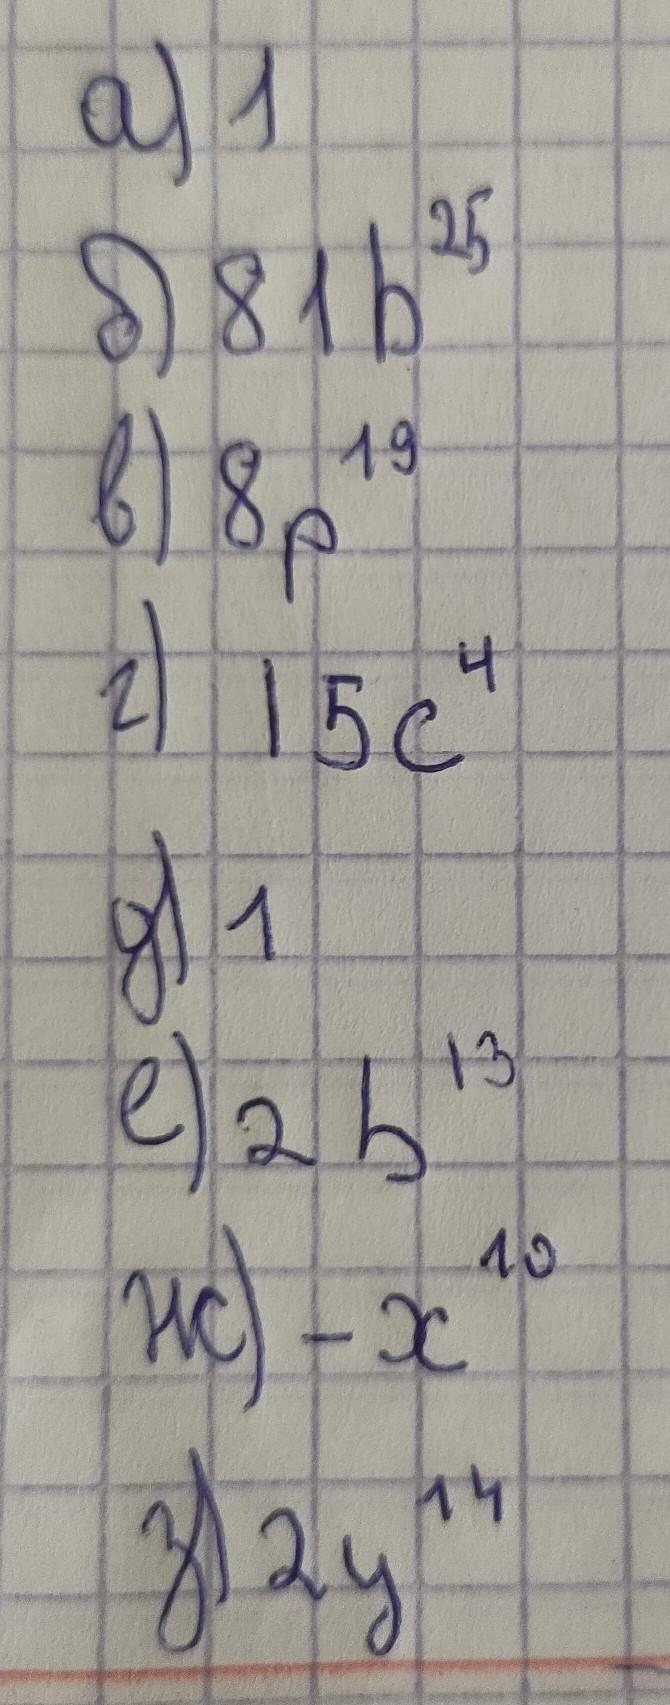 а) 1
б) 81b²⁵
в) 8p¹⁹
г) 15c⁴
д) 1
е) 2b¹³
ж) -x¹⁰
з) 2y¹⁴